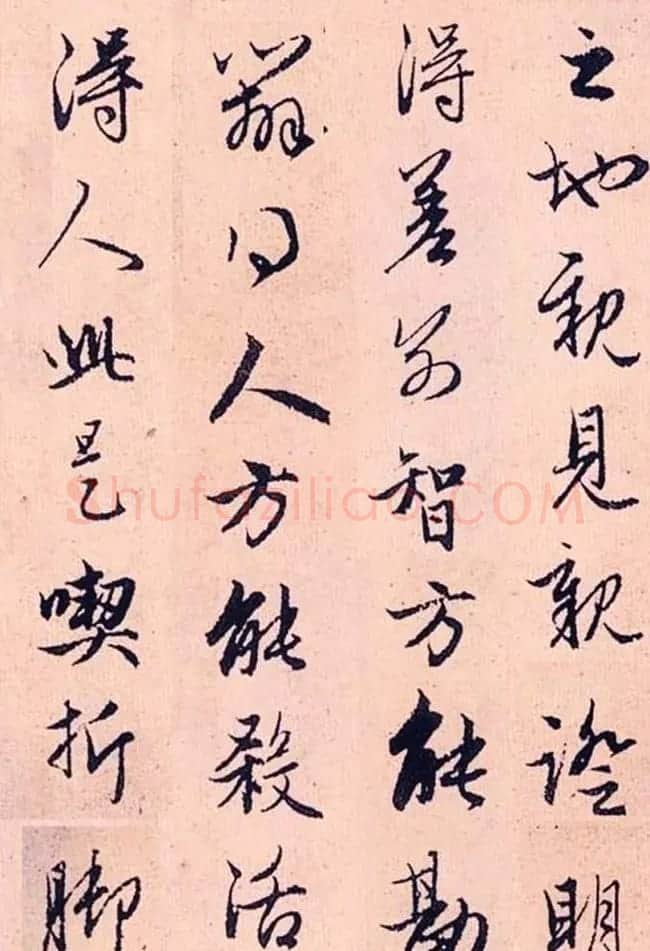 之地親見親證明
得差別智方能勘
辨得人方能殺活
得人此是喫折脚
Shufaziliao.COM